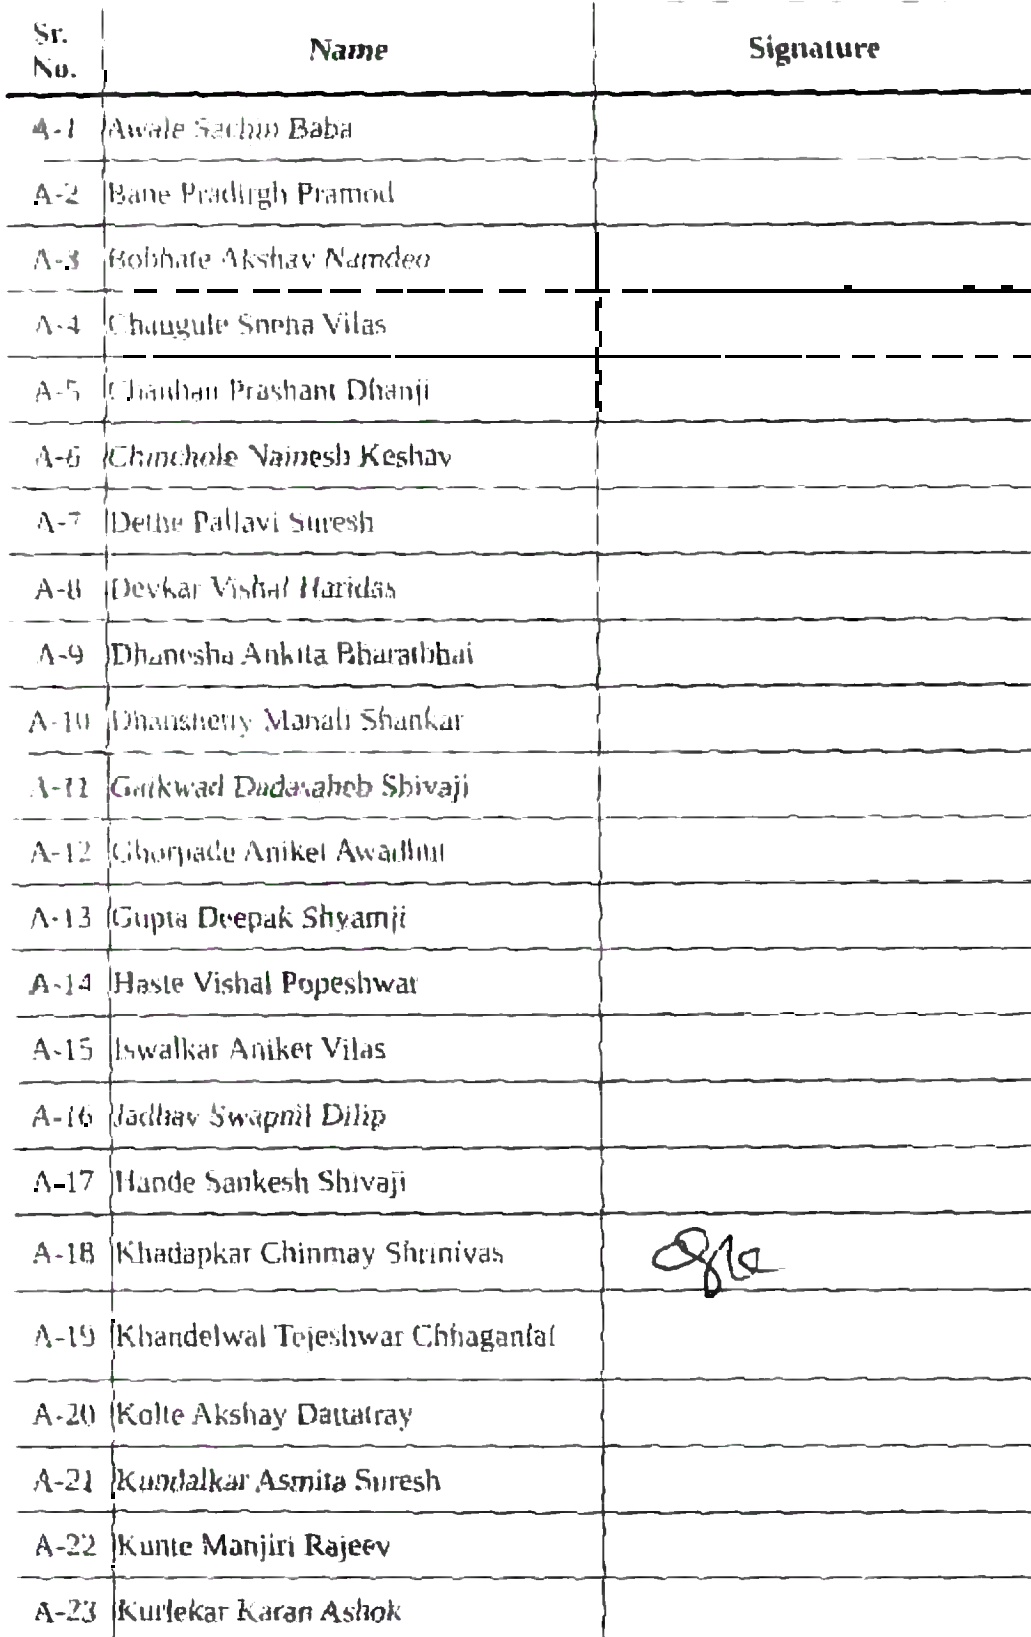 Sr. No. Name Signature
A-1 Awale Sachin Baba
A-2 Bane Pradirgh Pramod
A-3 Bobhate Akshay Namdeo
A-4 Chaugule Sneha Vilas
A-5 Chauhan Prashant Dhanji
A-6 Chinchole Nainesh Keshav
A-7 Dethe Pallavi Suresh
A-8 Devkar Vishal Haridas
A-9 Dhanesha Ankita Bharatbhai
A-10 Dhanshetty Manali Shankar
A-11 Gaikwad Dadasaheb Shivaji
A-12 Ghorpade Aniket Awadhut
A-13 Gupta Deepak Shyamji
A-14 Haste Vishal Popeshwar
A-15 Iswalkar Aniket Vilas
A-16 Jadhav Swapnil Dilip
A-17 Hande Sankesh Shivaji
A-18 Khadapkar Chinmay Shrinivas
A-19 Khandelwal Tejeshwar Chhaganlal
A-20 Kolte Akshay Dattatray
A-21 Kundalkar Asmita Suresh
A-22 Kunte Manjiri Rajeev
A-23 Kurlekar Karan Ashok